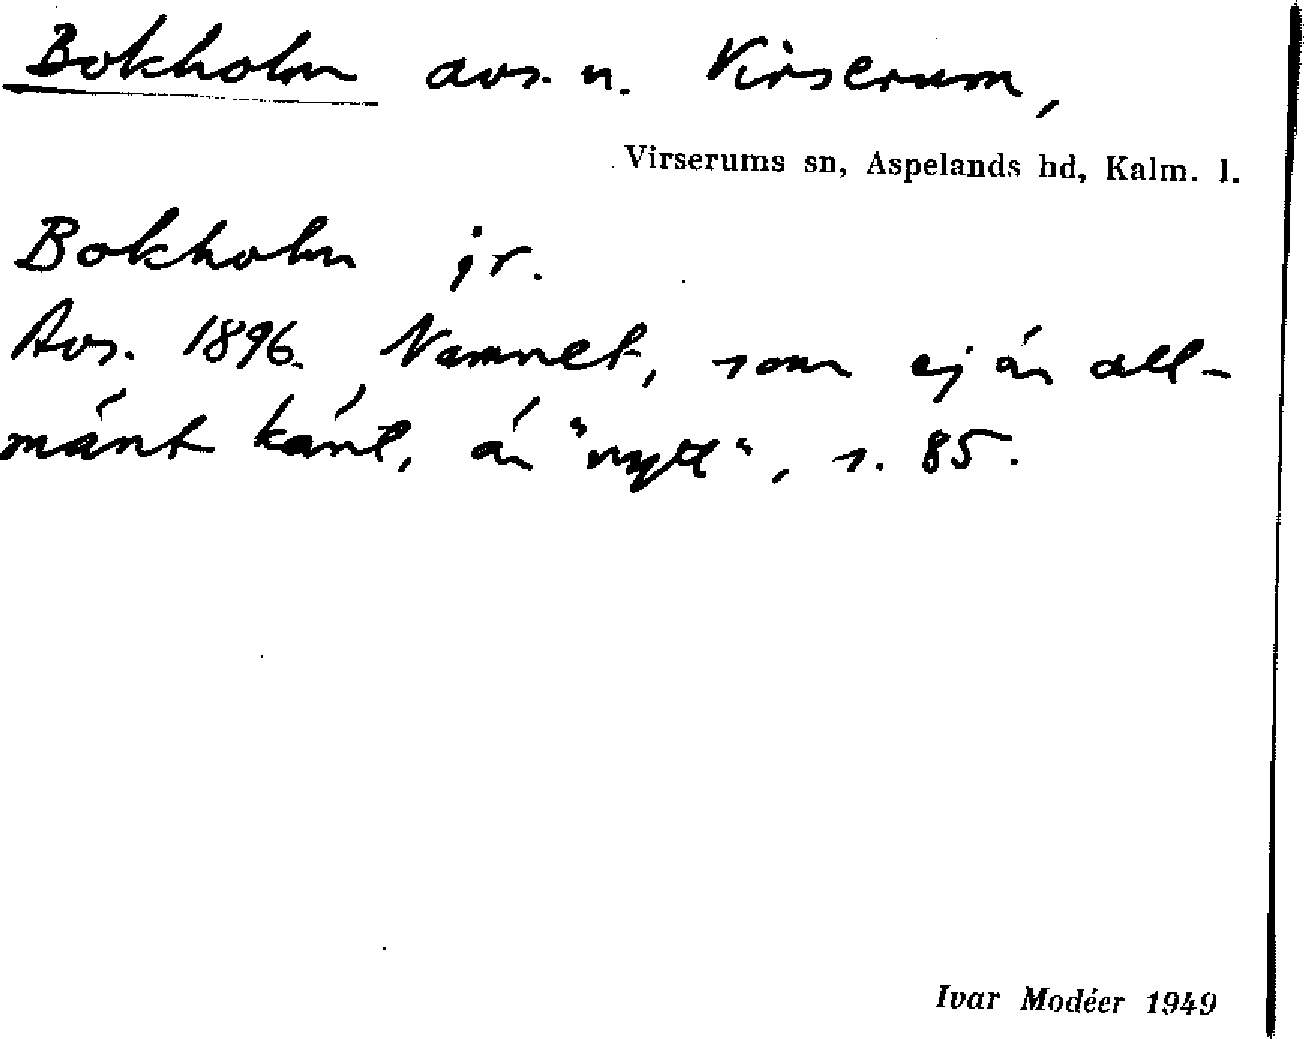 Bokholm avs. u. Virserum,
Virserums sn, Aspelands hd, Kalm. l.
Bokholm jr.
Avs. 1896. Namnet, som ej är all-
mänt känt, är "nytt", s. 85.
Ivar Modéer 1949